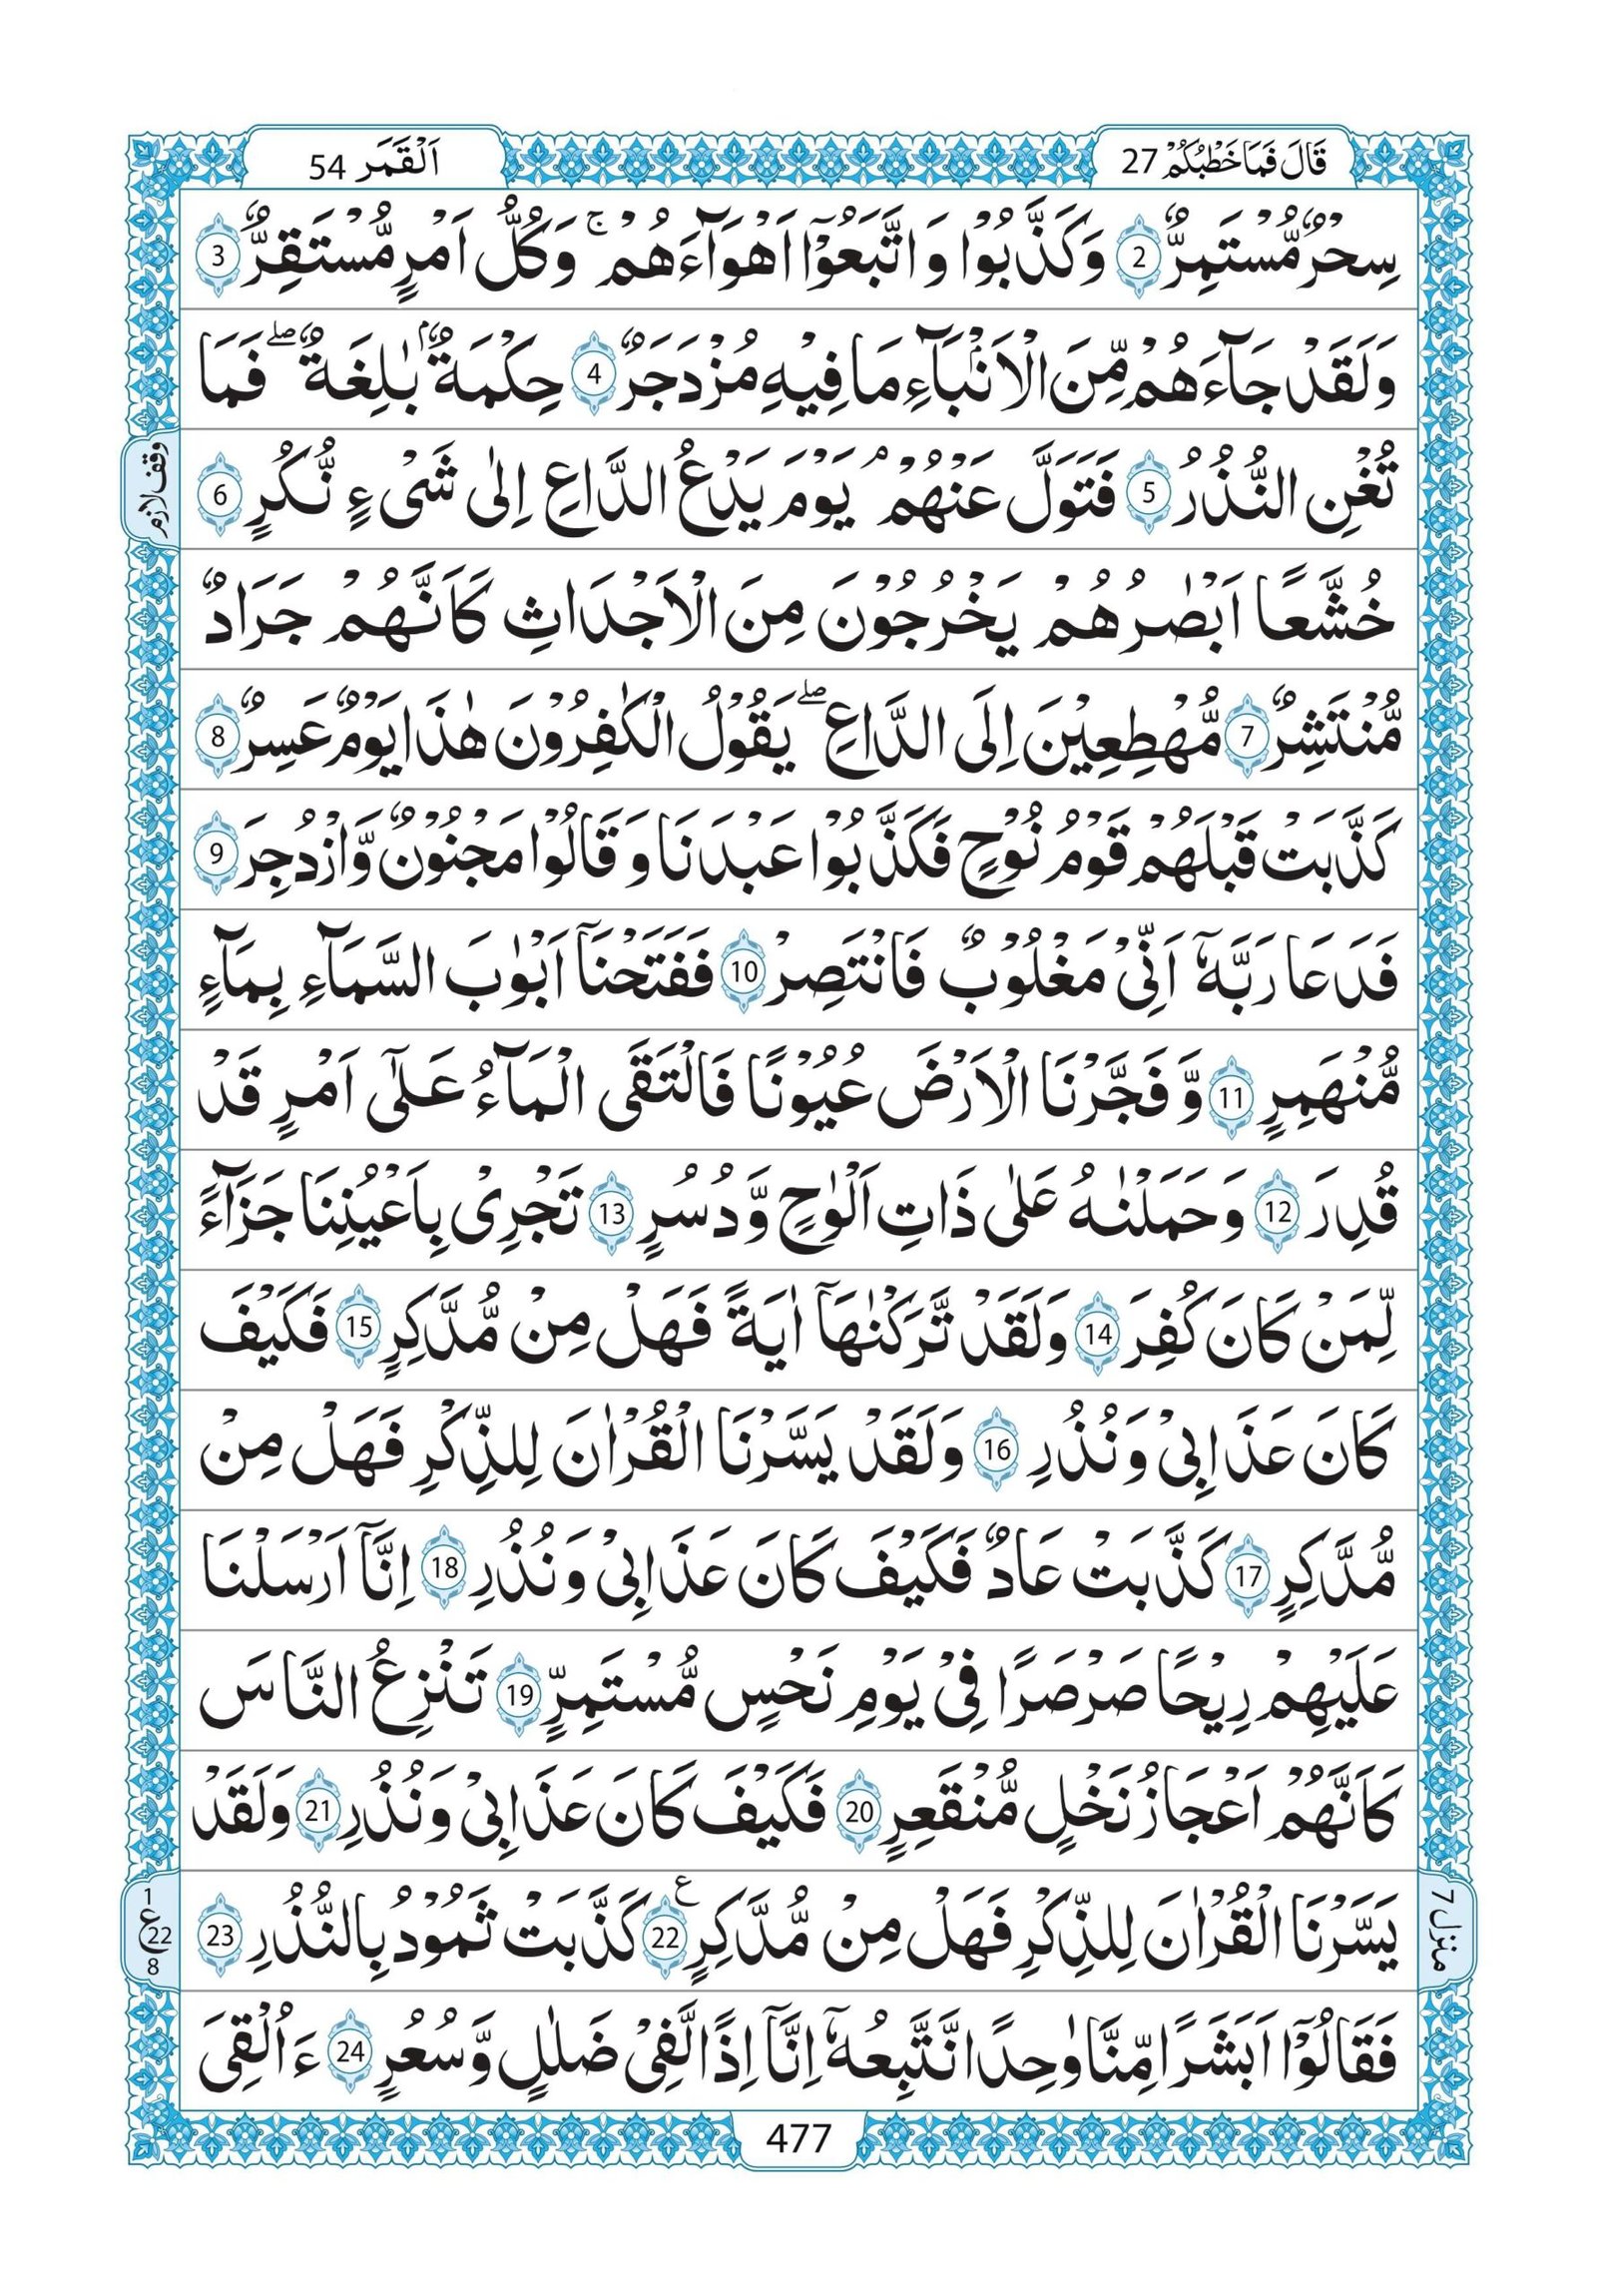 قَالَ فَمَا خَطْبُكُمْ 27
اَلْقَمَر 54
سِحْرٌ مُّسْتَمِرٌّ 2 وَكَذَّبُوْا وَ اتَّبَعُوْٓا اَهْوَآءَهُمْ ۚ وَكُلُّ اَمْرٍ مُّسْتَقِرٌّ 3
وَلَقَدْ جَآءَهُمْ مِّنَ الْاَنْۢبَآءِ مَا فِيْهِ مُزْدَجَرٌ 4 حِكْمَةٌۢ بٰلِغَةٌ ۖ فَمَا
تُغْنِ النُّذُرُ 5 فَتَوَلَّ عَنْهُمْ ۘ يَوْمَ يَدْعُ الدَّاعِ اِلٰى شَىْءٍ نُّكُرٍ 6
وقف لازم
خُشَّعًا اَبْصٰرُهُمْ يَخْرُجُوْنَ مِنَ الْاَجْدَاثِ كَاَنَّهُمْ جَرَادٌ
مُّنْتَشِرٌ 7 مُّهْطِعِيْنَ اِلَى الدَّاعِ ۖ يَقُوْلُ الْكٰفِرُوْنَ هٰذَا يَوْمٌ عَسِرٌ 8
كَذَّبَتْ قَبْلَهُمْ قَوْمُ نُوْحٍ فَكَذَّبُوْا عَبْدَنَا وَ قَالُوْا مَجْنُوْنٌ وَّازْدُجِرَ 9
فَدَعَا رَبَّهٗٓ اَنِّىْ مَغْلُوْبٌ فَانْتَصِرْ 10 فَفَتَحْنَآ اَبْوٰبَ السَّمَآءِ بِمَآءٍ
مُّنْهَمِرٍ 11 وَّ فَجَّرْنَا الْاَرْضَ عُيُوْنًا فَالْتَقَى الْمَآءُ عَلٰٓى اَمْرٍ قَدْ
قُدِرَ 12 وَحَمَلْنٰهُ عَلٰى ذَاتِ اَلْوٰحٍ وَّ دُسُرٍ 13 تَجْرِىْ بِاَعْيُنِنَا جَزَآءً
لِّمَنْ كَانَ كُفِرَ 14 وَلَقَدْ تَّرَكْنٰهَآ اٰيَةً فَهَلْ مِنْ مُّدَّكِرٍ 15 فَكَيْفَ
كَانَ عَذَابِىْ وَنُذُرِ 16 وَلَقَدْ يَسَّرْنَا الْقُرْاٰنَ لِلذِّكْرِ فَهَلْ مِنْ
مُّدَّكِرٍ 17 كَذَّبَتْ عَادٌ فَكَيْفَ كَانَ عَذَابِىْ وَنُذُرِ 18 اِنَّآ اَرْسَلْنَا
عَلَيْهِمْ رِيْحًا صَرْصَرًا فِىْ يَوْمِ نَحْسٍ مُّسْتَمِرٍّ 19 تَنْزِعُ النَّاسَ
كَاَنَّهُمْ اَعْجَازُ نَخْلٍ مُّنْقَعِرٍ 20 فَكَيْفَ كَانَ عَذَابِىْ وَنُذُرِ 21 وَلَقَدْ
يَسَّرْنَا الْقُرْاٰنَ لِلذِّكْرِ فَهَلْ مِنْ مُّدَّكِرٍ ع 22 كَذَّبَتْ ثَمُوْدُ بِالنُّذُرِ 23
منزل 7
1
ع 22
8
فَقَالُوْٓا اَبَشَرًا مِّنَّا وٰحِدًا نَّتَّبِعُهٗٓ اِنَّآ اِذًا لَّفِىْ ضَلٰلٍ وَّسُعُرٍ 24 ءَاُلْقِىَ
477